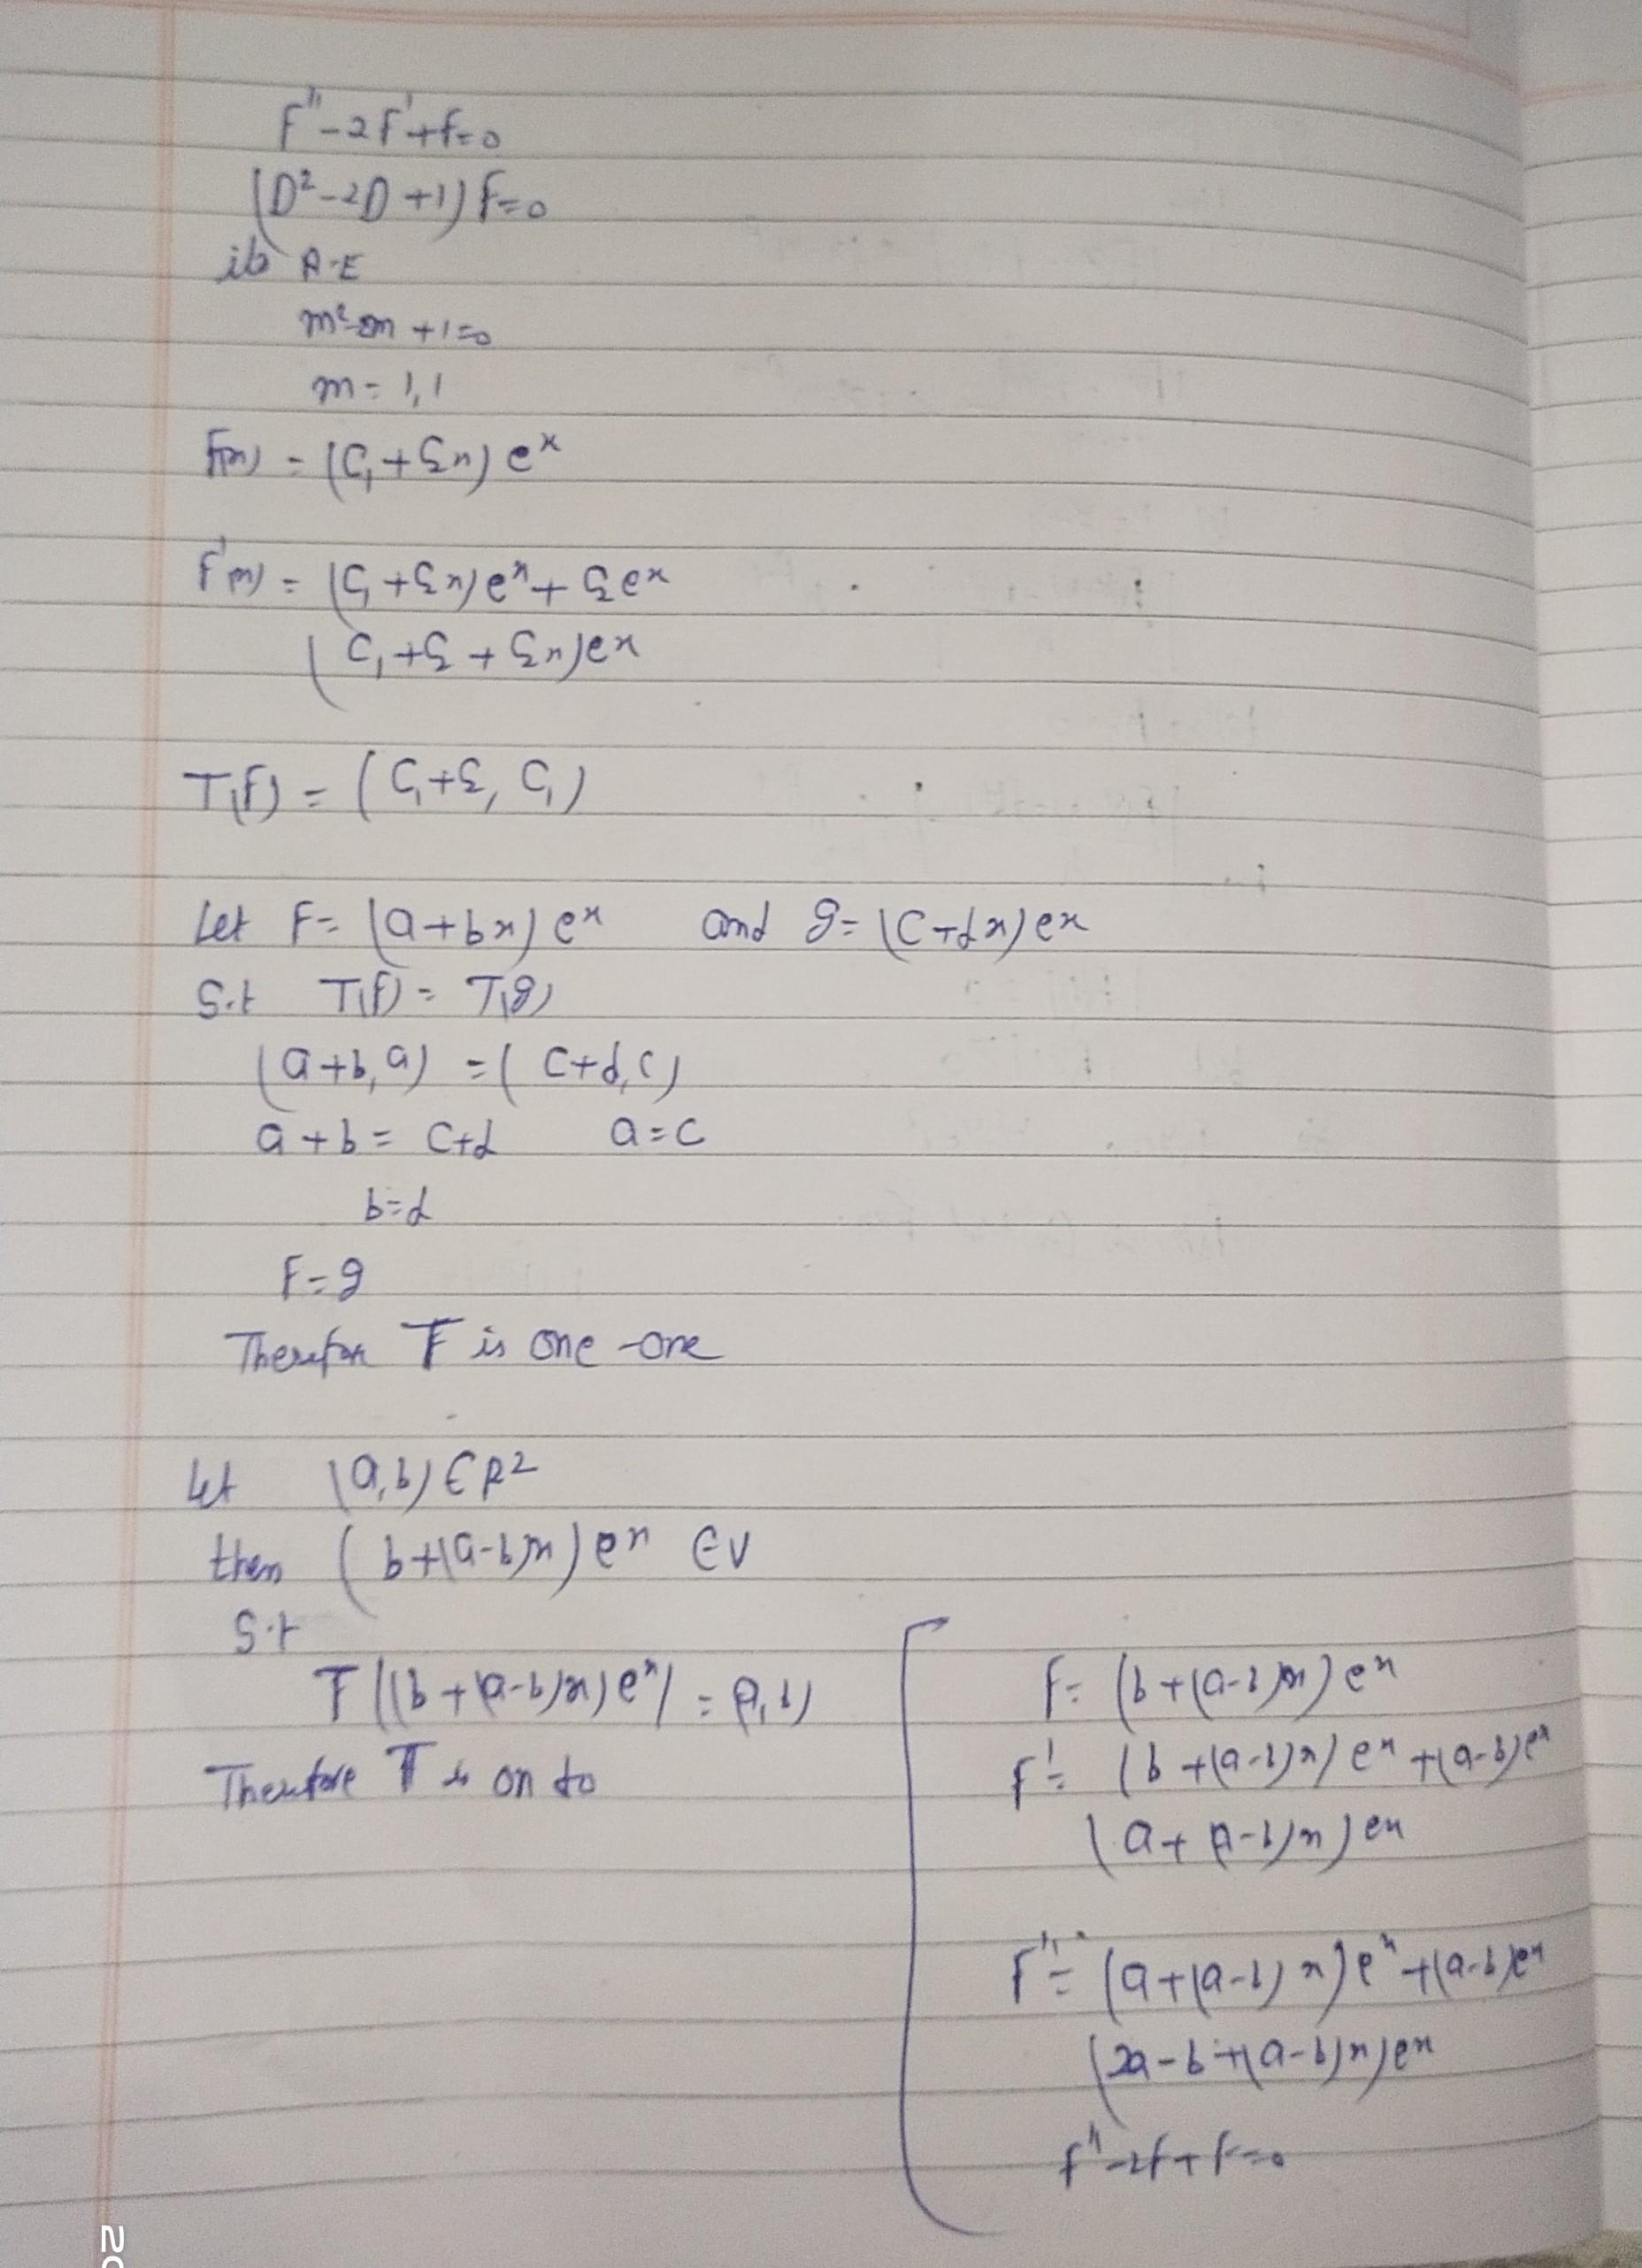 F''-2F'+f=0
(D²-2D+1)F=0
its A.E
m²-2m+1=0
m=1,1
F(x) = (C₁+C₂x)eˣ
F'(x) = (C₁+C₂x)eˣ+C₂eˣ
(C₁+C₂+C₂x)eˣ
T(f) = (C₁+C₂, C₁)
Let F=(a+bx)eˣ and g=(c+dx)eˣ
S.t T(f) = T(g)
(a+b,a) = (c+d,c)
a+b = c+d a=c
b=d
F=g
Therefore T is one-one
Let (a,b)∈R²
then (b+(a-b)x)eˣ ∈V
S.t
T((b+(a-b)x)eˣ) = (a,b)
Therefore T is on to
F= (b+(a-b)x)eˣ
F'= (b+(a-b)x)eˣ+(a-b)eˣ
(a+(a-b)x)eˣ
F''= (a+(a-b)x)eˣ+(a-b)eˣ
(2a-b+(a-b)x)eˣ
f''-2f+f=0
20